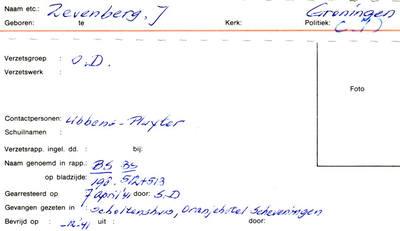 Naam etc.: Zevenberg, J Groningen
Geboren: te Kerk: Politiek:
Verzetsgroep : O.D.
Verzetswerk :
Foto
Contactpersonen: Ubbens - Pluyter
Schuilnamen :
Verzetsrapp. ingel. dd. : bij:
Naam genoemd in rapp.: BS BS
op bladzijde: 198. 512+513
Gearresteerd op : 7 april '41 door: S.D
Gevangen gezeten in : Scholtenshuis, Oranjehotel Scheveningen
Bevrijd op : '41 uit : door: